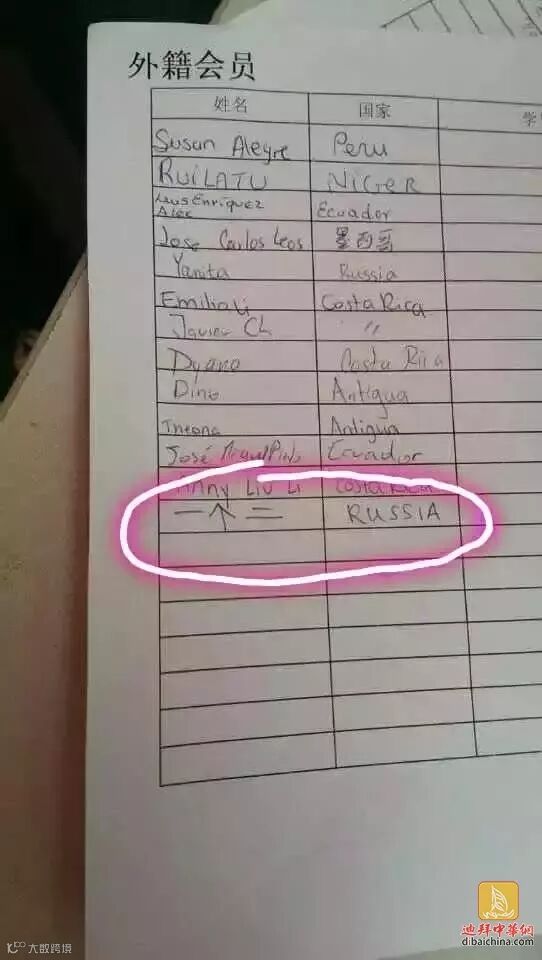 外籍会员
姓名 国家 学
Susan Alegre Peru
RUILATU NIGER
Luis Enriquez Ecuador
Alex
Jose Carlos Leos 墨西哥
Yanita Russia
Emilia Li Costa Rica
Javier Ch "
Dyana Costa Rica
Dino Antigua
Antigua
José Ecuador
LIU Li Costa Rica
一个二 RUSSIA
大数跨境
迪拜中華網
dibaichina.com